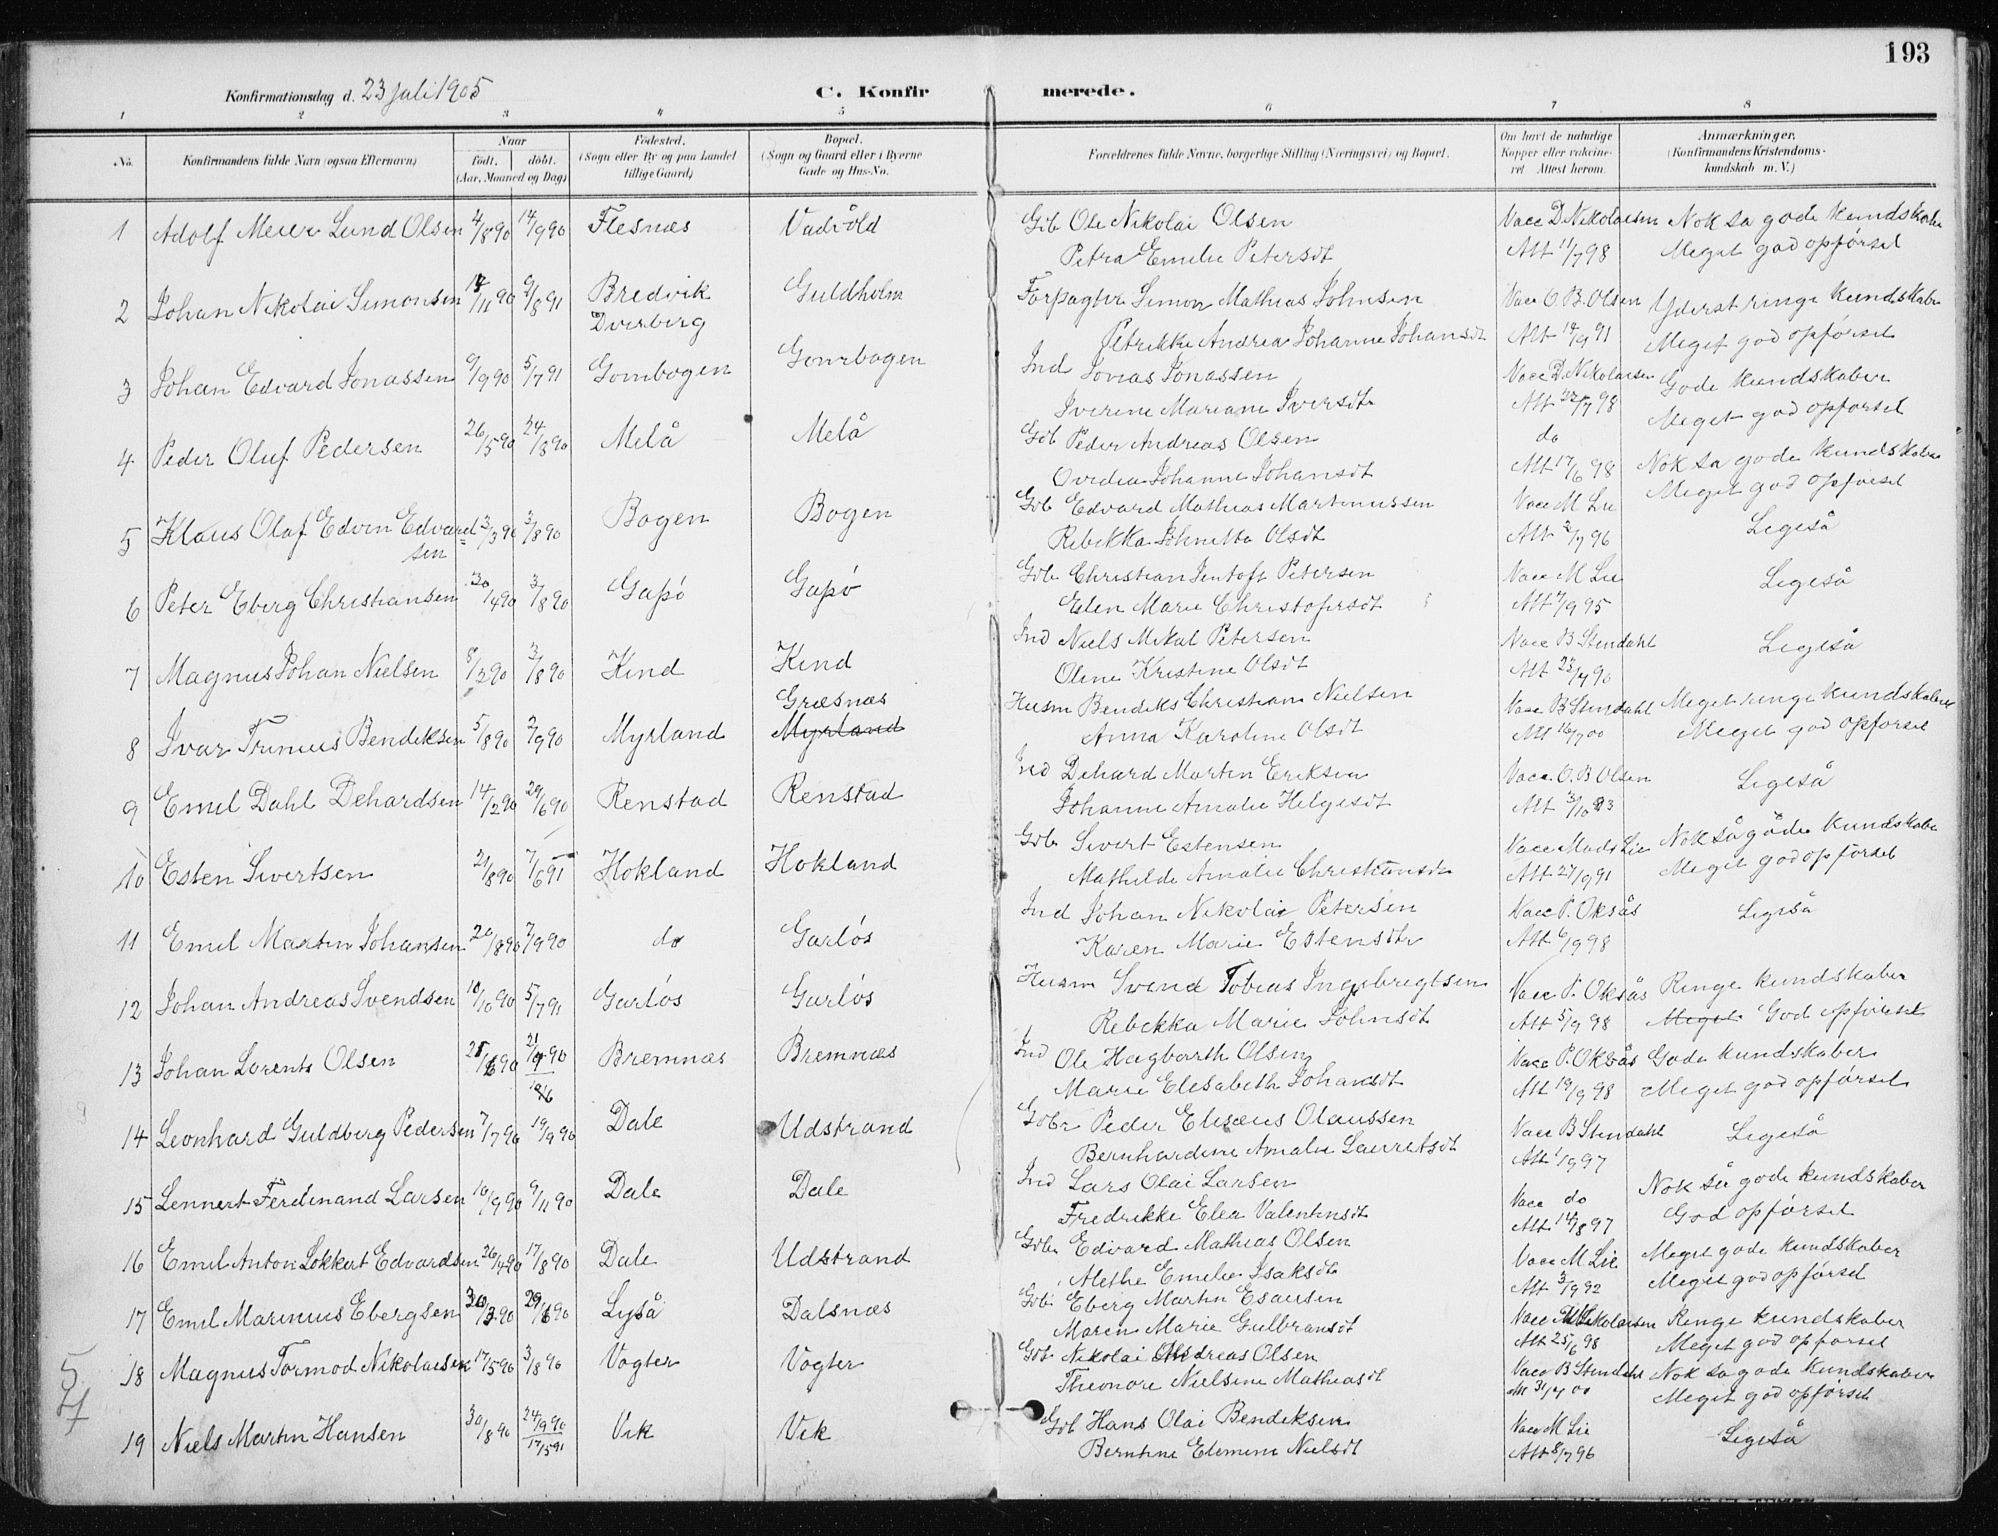 193
Konfirmationsdag d. 23 Juli 1905 C. Konfirmerede.
1 2 3 4 5 6 7 8
No. Konfirmandens fulde Navn (ogsaa Efternavn) Naar født, døbt. (Aar, Maaned og Dag) Fødested. (Sogn eller By og paa Landet tillige Gaard) Bopæl. (Sogn og Gaard eller i Byerne Gade og Hus-No. Forældrenes fulde Navne, borgerlige Stilling (Næringsvei) og Bopæl. Om havt de naturlige Kopper eller vakcineret. Attest herom. Anmærkninger. (Konfirmandens Kristendomskundskab m. V.)
1 Adolf Meier Lund Olsen 4/8 90 14/9 90 Flesnæs Gdb Ole Nikolai Olsen Vacc D. Nikolaisen Nok så gode kundskaber
Petra Emelie Petersdt Att 11/7 98 Meget god opførsel
2 Johan Nikolai Simonsen /11 90 2/8 91 Bredvik Guldholm Forpagter Simon Mathias Johnsen Vacc O. B. Olsen Yderst ringe kundskaber
Dverberg Petrikke Andrea Johanne Johansdt Att 14/9 91 Meget god opførsel
3 Johan Edvard Jonassen 9/9 90 5/7 91 Gombogen Gombogen Ind Jonas Jonassen Vacc D. Nikolaisen Gode kundskaber
Iverine Mariane Iversdtr Att 22/7 98 Meget god opførsel
4 Peder Oluf Pedersen 26/5 90 24/8 90 Melå Melå Gdb Peder Andreas Olsen do Nok så gode kundskaber
Ovedia Johanne Johansdt Att 17/6 98 Meget god opførsel
5 Klaus Olaf Edvin Edvard= 3/3 90 3/8 90 Bogen Bogen Gdb Edvard Mathias Martinussen Vacc M Lie Ligeså
sen Rebekka Johnetta Olsdt Att 2/7 96
6 Peter Eberg Christiansen 30/4 90 3/8 90 Gapø Gapø Gdb Christian Jentoft Petersen Vacc M Lie Ligeså
Elen Marie Christofersdt Att 7/9 95
7 Magnus Johan Nielsen 8/2 90 3/8 90 Kind Kind Ind Niels Mikal Petersen Vacc B Stendahl Ligeså
Oline Kristine Olsdt Att 23/7 90
Græsnæs
8 Ivar Trinius Bendiksen 5/8 90 7/9 90 Myrland Myrland Husm Bendiks Christian Nielsen Vacc B Stendahl Meget ringe kundskaber
Anna Karoline Olsdt Att 16/7 00 Meget god opførsel
9 Emil Dahl Dehardsen 14/2 90 29/6 90 Renstad Renstad Ind Dehard Martin Eriksen Vacc. O. B Olsen Ligeså
Johanne Amalie Helgesdt Att 3/10 93
10 Esten Sivertsen 21/8 90 7/6 91 Hokland Hokland Gdb Sivert Estensen Vacc Mads Lie Nok så gode kundskaber
Mathilde Amalie Christiansdt Att 27/9 91 Meget god opførsel
11 Emil Martin Johansen 20/8 90 7/9 90 do Garløs Ind Johan Nikolai Petersen Vacc P. Oksås Ligeså
Karen Marie Estensdtr Att 6/9 98
12 Johan Andreas Svendsen 10/10 90 5/7 91 Garløs Garløs Husm Svend Tobias Ingebregtsen Vacc P. Oksås Ringe kundskaber
Rebekka Marie Johnsdt Att 5/9 98 Meget God opførsel
13 Johan Lorents Olsen 25/6 90 21/9 90 Bremnæs Bremnæs Ind Ole Hagbarth Olsen Vacc P. Oksås Gode kundskaber
Marie Elisabeth Johansdt Att 19/9 98 Meget god opførsel
14 Leonhard Guldberg Pedersen 7/7 90 19/9 90 Dale Udstrand Gdbr Peder Eliseus Olaussen Vacc B Stendahl Ligeså
Bernhardine Amalie Lauretsdt Att 1/9 97
15 Lennert Ferdinand Larsen 10/9 90 9/11 90 Dale Dale Ind Lars Olai Larsen Vacc do Nok så gode kundskaber
Fredrikke Elea Valentinsdt Att 14/8 97 God opførsel
16 Emil Anton Lokkert Edvardsen 26/4 90 17/8 90 Dale Udstrand Gdb Edvard Mathias Olsen Vacc M Lie Meget gode kundskaber
Alethe Emelie Isaksdt Att 3/9 92 Meget god opførsel
17 Emil Marinius Ebergsen 30/3 90 29/6 90 Lyså Dalsnæs Gdb Eberg Martin Esausen Vacc Nikolaisen Ringe kundskaber
Maren Marie Gulbransdt Att 25/6 98 Meget god opførsel
18 Magnus Tormod Nikolaisen 17/5 90 3/8 90 Vogter Vogter Gdb Nikolai Andreas Olsen Vacc B Stendahl Nok så gode kundskaber
Theonore Nielsine Mathiasdt Att 31/7 00 Meget god opførsel
19 Niels Martin Hansen 30/8 90 24/9 90 Vik Vik Gdb Hans Olai Bendiksen Vacc M Lie Ligeså
17/5 91 Berntine Elemine Nielsdt Att 8/7 96